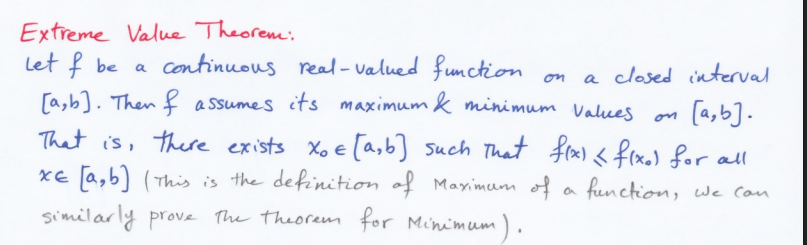 Extreme Value Theorem:
Let f be a continuous real-valued function on a closed interval
[a,b]. Then f assumes its maximum & minimum values on [a,b].
That is, there exists x₀ ∈ [a,b] such that f(x) ⩽ f(x₀) for all
x ∈ [a,b] (This is the definition of Maximum of a function, we can
similarly prove the theorem for Minimum).